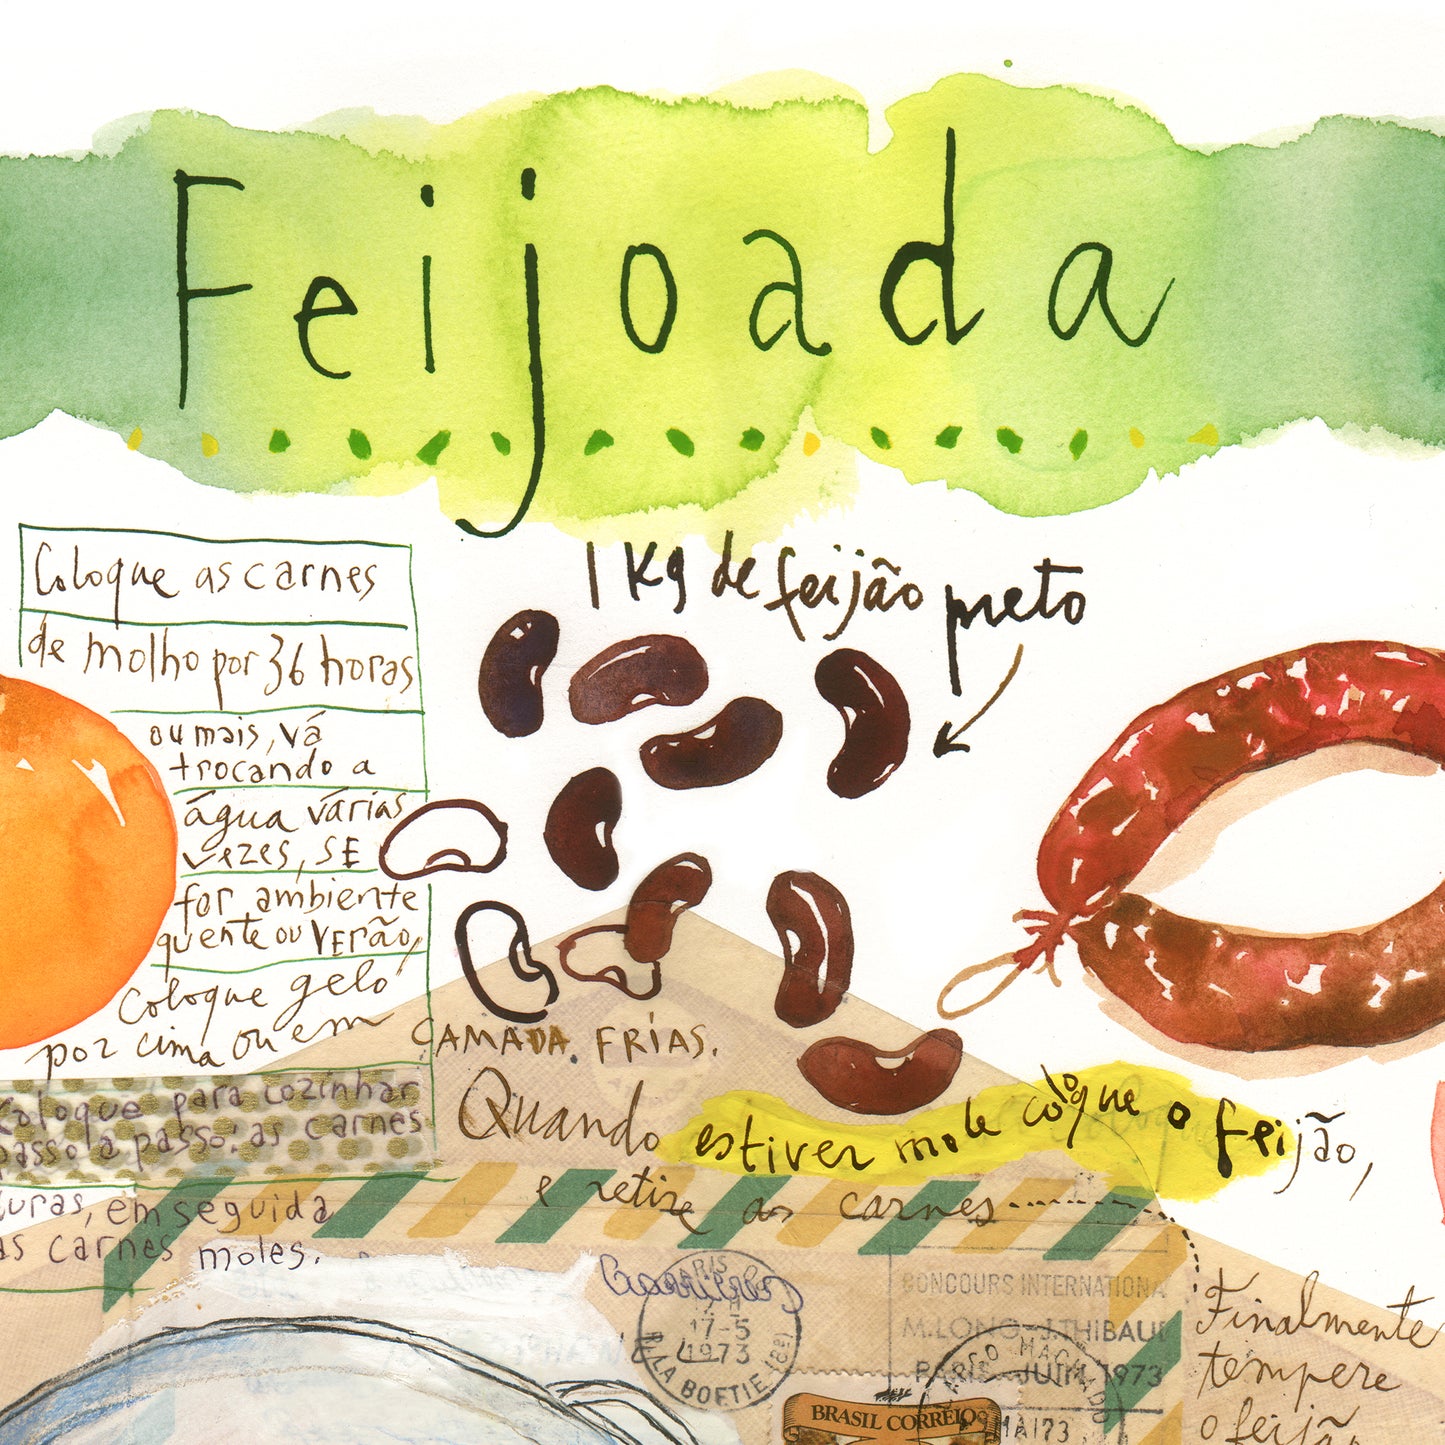 Feijoada
1 kg de feijão preto
Coloque as carnes
de molho por 36 horas
ou mais, vá
trocando a
água várias
vezes, SE
for ambiente
quente ou VERÃO,
Coloque gelo
por cima ou em
CAMADA. FRÍAS.
Coloque para cozinhar
passo a passo: as carnes
uras, em seguida
as carnes moles.
Quando estiver mole coloque o feijão,
e retire as carnes
PARIS
17-5
1973
R. LA BOETIE (8e)
CONCOURS INTERNATIONA
M.LONG-J.THIBAU
PARIS-JUIN 1973
BRASIL CORREIO
MAI73
Finalmente
tempere
o feijã